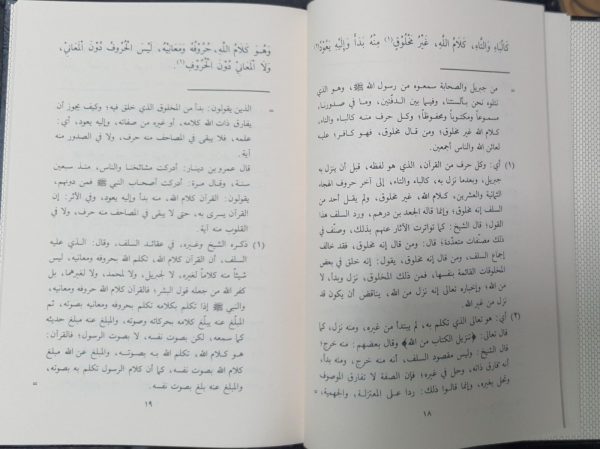 كَالْبَاءِ وَالتَّاءِ، كَلَامُ اللهِ، غَيْرُ مَخْلُوقٍ(١) مِنْهُ بَدَأَ وَإِلَيْهِ يَعُودُ(٢)
= من جبريل والصحابة سمعوه من رسول الله ﷺ، وهو الذي
نتلوه نحن بألسنتنا، وفيما بين الدفتين، وما في صدورنا،
مسموعاً ومكتوباً ومحفوظاً؛ وكل حرف منه كالباء والتاء،
كلام الله غير مخلوق؛ ومن قال مخلوق، فهو كافر؛ عليه
لعائن الله والناس أجمعين.
(١) أي: وكل حرف من القرآن، الذي هو لفظه، قبل أن ينزل به
جبريل، وبعدما نزل به، كالباء، والتاء، إلى آخر حروف الهجاء
الثمانية والعشرين، كلام الله، غير مخلوق، ولم يقل أحد من
السلف إنه مخلوق؛ وإنما قاله الجعد بن درهم، ورد السلف هذا
القول؛ قال الشيخ: كما تواترت الآثار عنهم بذلك، وصنّف في
ذلك مصنفات متعدّدة؛ قال: ومن قال إنه مخلوق، فقد خالف
إجماع السلف، ومن قال إنه مخلوق، يقول: إنه خلق في بعض
المخلوقات القائمة بنفسها، فمن ذلك المخلوق، نزل وبدأ، لا
من الله؛ وإخباره تعالى إنه نزل من الله، يناقض أن يكون قد
نزل من غير الله.
(٢) أي: هو تعالى الذي تكلم به، لم يبتدأ من غيره، ومنه نزل؛ كما
قال تعالى: ﴿تنزيل الكتاب من الله﴾ وقال بعضهم: منه خرج؛
قال الشيخ: وليس مقصود السلف، أنه منه خرج، ومنه بدأ،
أنه فارق ذاته، وحل في غيره؛ فإن الصفة لا تفارق الموصوف
وتحل بغيره، وإنما قالوا ذلك: رداً على المعتزلة، والجهمية، =
١٨
وَهُوَ كَلَامُ اللهِ، حُرُوفُهُ وَمَعَانِيْهُ، لَيْسَ الْحُرُوفُ دُوْنَ الْمَعَانِي،
وَلَا الْمَعَانِي دُوْنَ الْحُرُوْفِ(١).
= الذين يقولون: بدأ من المخلوق الذي خلق فيه؛ وكيف يجوز أن
يفارق ذات الله كلامه، أو غيره من صفاته، وإليه يعود، أي:
علمه، فلا يبقى في المصاحف منه حرف، ولا في الصدور منه
آية.
قال عمرو بن دينار: أدركت مشائخنا والناس، منذ سبعين
سنة، وقال مرة: أدركت أصحاب النبي ﷺ فمن دونهم،
يقولون: القرآن كلام الله، منه بدأ وإليه يعود، وفي الأثر: إن
القرآن يسرى به، حتى لا يبقى في المصاحف منه حرف، ولا في
القلوب منه آية.
(١) ذكره الشيخ وغيره، في عقائد السلف، وقال: الذي عليه
السلف، أن القرآن كلام الله، تكلم الله بحروفه ومعانيه، ليس
شيئاً منه كلاماً لغيره، لا لجبريل، ولا لمحمد، ولا لغيرهما، بل
كفر الله من جعله قول البشر؛ فالقرآن كلام الله حروفه ومعانيه،
والنبي ﷺ إذا تكلم بكلامه تكلم بحروفه ومعانيه بصوته، ثم
المبلّغ عنه يبلّغ كلامه بحركاته وصوته، والمبلغ عنه مبلغ حديثه
كما سمعه، لكن بصوت نفسه، لا بصوت الرسول؛ فالقرآن:
هو كلام الله، تكلم الله به بصوته، والمبلغ عن الله مبلغ
كلام الله بصوت نفسه، كما أن كلام الرسول تكلم به بصوته،
والمبلغ عنه بلغ بصوت نفسه. =
١٩